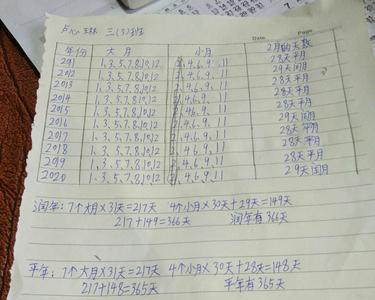 卢心琳 三(3)班
Date Page
年份 大月 小月 2月的天数
2011 1、3、5、7、8、10、12 2、4、6、9、11 28天平月
2012 1、3、5、7、8、10、12 2、4、6、9、11 29天闰月
2013 1、3、5、7、8、10、12 2、4、6、9、11 28天平月
2014 1、3、5、7、8、10、12 2、4、6、9、11 28天平月
2015 1、3、5、7、8、10、12 2、4、6、9、11 28天平月
2016 1、3、5、7、8、10、12 2、4、6、9、11 29天闰月
2017 1、3、5、7、8、10、12 2、4、6、9、11 28天平月
2018 1、3、5、7、8、10、12 2、4、6、9、11 28天平月
2019 1、3、5、7、8、10、12 2、4、6、9、11 28天平月
2020 1、3、5、7、8、10、12 2、4、6、9、11 29天闰月
润年:7个大月×31天=217天 4个小月×30天+29天=149天
217+149=366天 润年有366天
平年:7个大月×31天=217天 4个小月×30天+28天=148天
217+148=365天 平年有365天